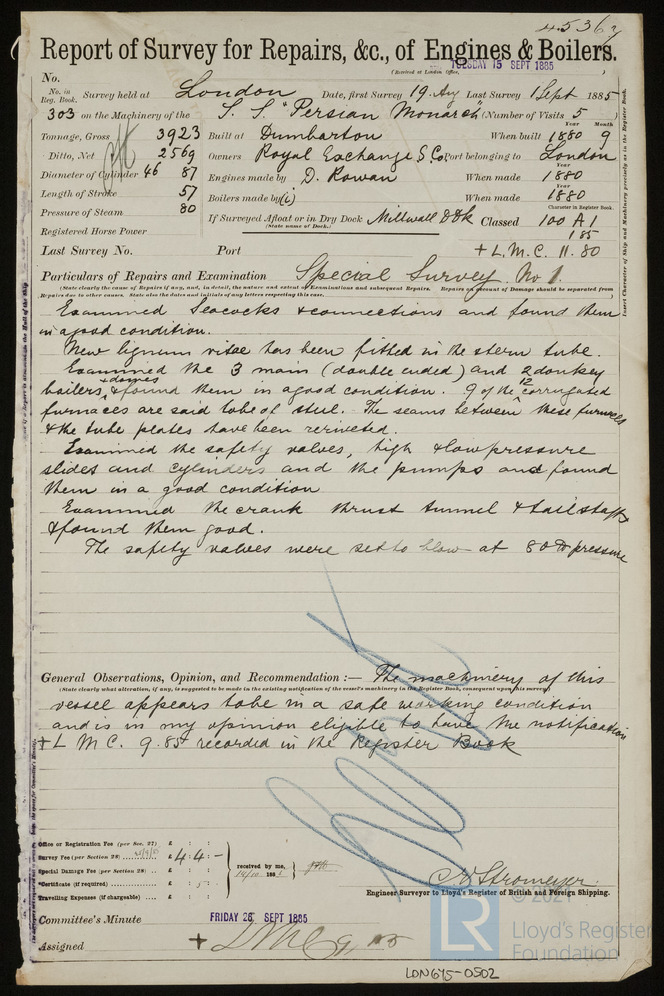 4536
Report of Survey for Repairs, &c., of Engines & Boilers.
TUESDAY 15 SEPT 1885
(Received at London Office,
No.
No. in Reg. Book. Survey held at London Date, first Survey 19 Aug Last Survey 1 Sept 1885
303 on the Machinery of the S. S. "Persian Monarch" (Number of Visits 5
Tonnage, Gross 3923 Built at Dumbarton When built Year 1880 Month 9
Ditto, Net 2569 Owners Royal Exchange S. Co Port belonging to London
Diameter of Cylinder 46 87 Engines made by D. Rowan When made Year 1880
Length of Stroke 57 Boilers made by (i) When made Year 1880
Pressure of Steam 80 If Surveyed Afloat or in Dry Dock Millwall Dk Classed Character in Register Book. 100 A 1
(State name of Dock.) 1 85
Registered Horse Power
Last Survey No. Port + L.M.C. 11.80
Particulars of Repairs and Examination Special Survey No 1.
(State clearly the cause of Repairs if any, and, in detail, the nature and extent of Examinations and subsequent Repairs. Repairs on account of Damage should be separated from
Repairs due to other causes. State also the dates and initials of any letters respecting this case.)
Examined Seacocks & connections and found them
in a good condition.
New lignum vitae has been fitted in the stern tube.
Examined the 3 main (double ended) and 2 donkey
boilers, + domes & found them in a good condition. 9 of the 12 corrugated
furnaces are said to be of steel. The seams between these furnaces
& the tube plates have been reriveted.
Examined the safety valves, high & low pressure
slides and cylinders and the pumps and found
them in a good condition
Examined the crank thrust tunnel & tail shafts
& found them good.
The safety valves were set to blow at 80 lb pressure
General Observations, Opinion, and Recommendation :— The machinery of this
(State clearly what alteration, if any, is suggested to be made in the existing notification of the vessel's machinery in the Register Book, consequent upon this survey)
vessel appears to be in a safe working condition
and is in my opinion eligible to have the notification
+ L M C. 9.85 recorded in the Register Book
Office or Registration Fee (per Sec. 27) £ : :
Survey Fee (per Section 28) £ 4 : 4 : -
Special Damage Fee (per Section 28) £ : :
*Certificate (if required) £ : :
Travelling Expenses (if chargeable) £ : :
received by me,
C. E. Stromeyer
Engineer Surveyor to Lloyd's Register of British and Foreign Shipping.
Committee's Minute FRIDAY 26 SEPT 1885
Assigned + L M C 9.85
© 2021
LR
Lloyd's Register
Foundation
LON675-0502